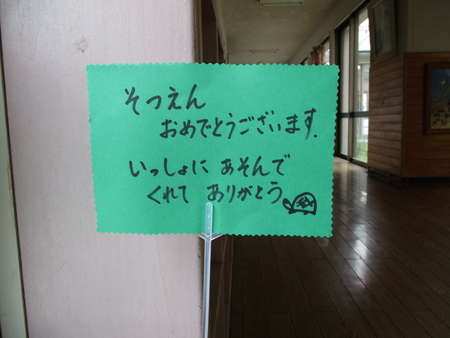 そつえん
おめでとうございます.
いっしょに あそんで
くれて ありがとう